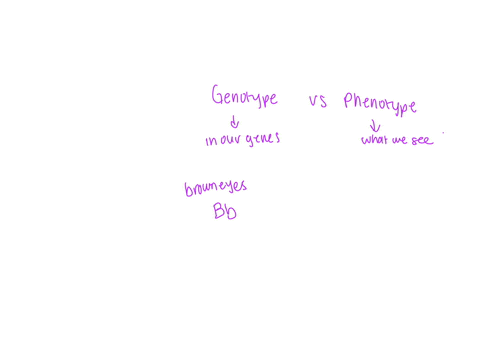 Genotype vs Phenotype
↓ ↓
in our genes what we see
brown eyes
Bb